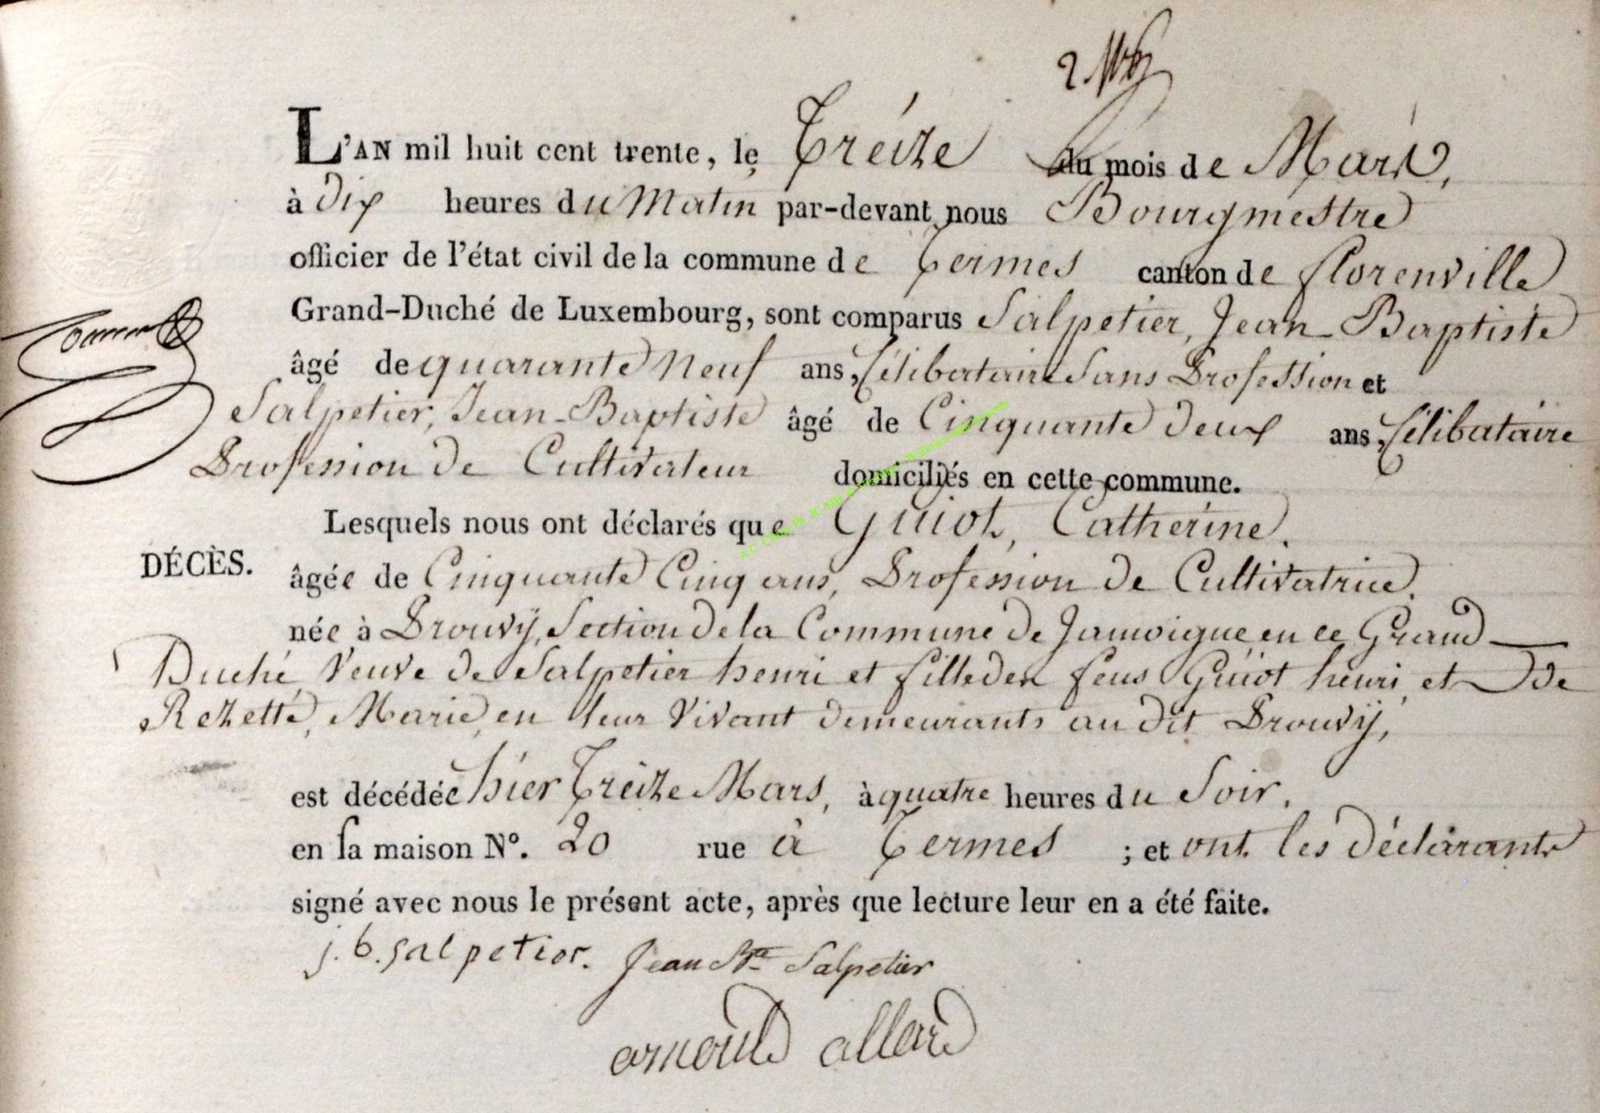 L'AN mil huit cent trente, le Tréize du mois de Mars,
à dix heures du Matin par-devant nous Bourgmestre
officier de l'état civil de la commune de Termes canton de florenville
Grand-Duché de Luxembourg, sont comparus Salpetier, Jean-Baptiste
âgé de quarante Neuf ans, Célibataire Sans Profession et
Salpetier, Jean-Baptiste âgé de Cinquante deux ans, Célibataire
Profession de Cultivateur domiciliés en cette commune.
Lesquels nous ont déclarés que Guiot, Catherine,
DÉCÈS.
âgée de Cinquante Cinq ans, Profession de Cultivatrice,
née à Prouvÿ, Section de la Commune de Jamoigne en ce Grand
Duché Veuve de Salpetier henri et fille des feus Guiot henri, et de
Rezette, Marie, en leur Vivant demeurants au dit Prouvÿ,
est décédée hier Treize Mars, à quatre heures du Soir,
en sa maison N°. 20 rue à Termes ; et ont les déclarants
signé avec nous le présent acte, après que lecture leur en a été faite.
j. b. salpetier. Jean Bte Salpetier
arnould allard